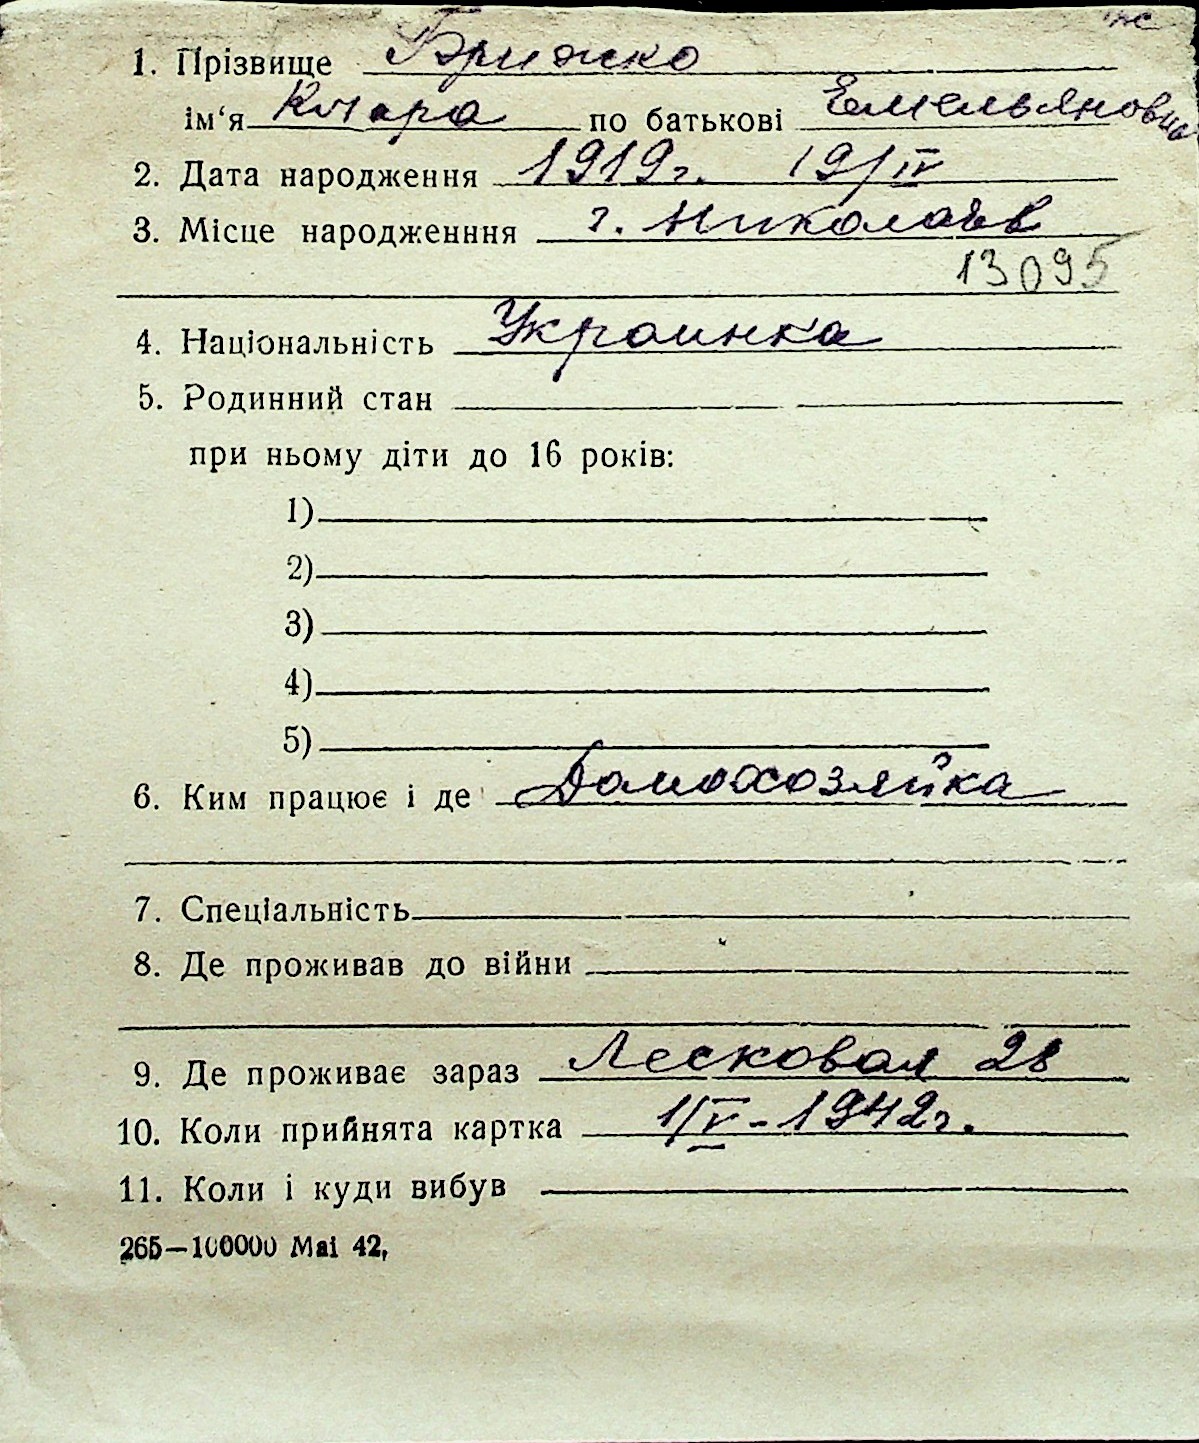 жс
1. Прізвище Брижко
ім‘я Клара по батькові Емельяновна
2. Дата народження 1919г. 19/IV
3. Місце народженння г. Николаев
13095
4. Національність Украинка
5. Родинний стан
при ньому діти до 16 років:
1)
2)
3)
4)
5)
6. Ким працює і де Домохозяйка
7. Спеціальність
8. Де проживав до війни
9. Де проживає зараз Лесковая 28
10. Коли прийнята картка 1/V-1942г.
11. Коли і куди вибув
265—100000 Mai 42,